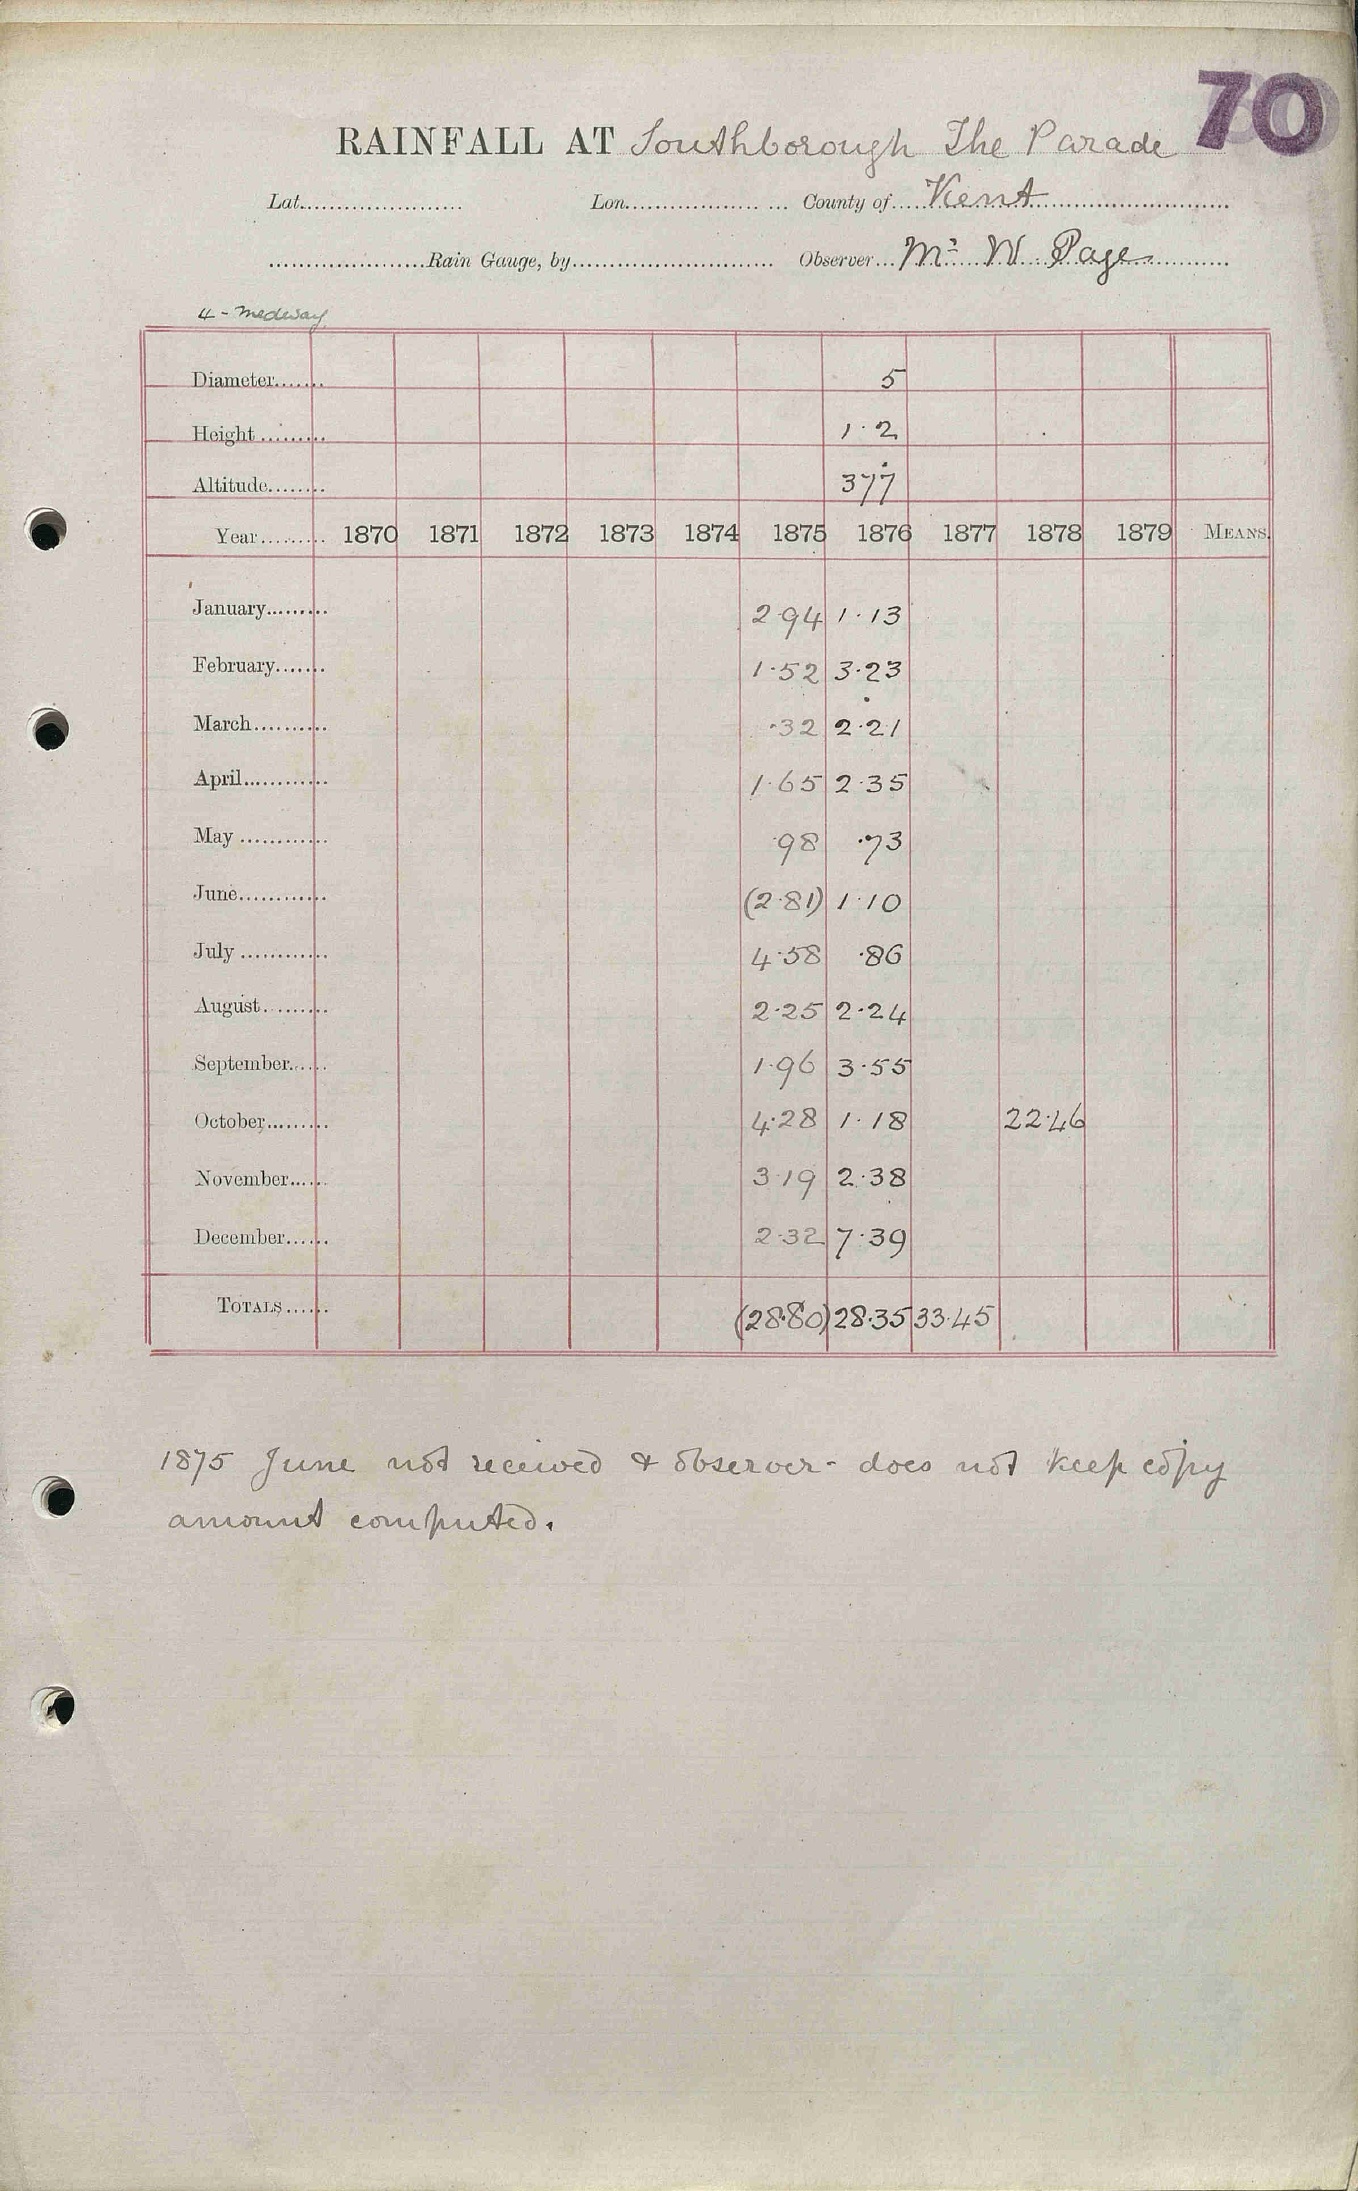 70
RAINFALL AT Southborough The Parade
Lat. Lon. County of Kent
Rain Gauge, by Observer Mr W Page
4 - Medway
Diameter 5
Height 1·2
Altitude 377
Year 1870 1871 1872 1873 1874 1875 1876 1877 1878 1879 MEANS.
January 2·94 1·13
February 1·52 3·23
March ·32 2·21
April 1·65 2·35
May ·98 ·73
June (2·81) 1·10
July 4·58 ·86
August 2·25 2·24
September 1·96 3·55
October 4·28 1·18 22·46
November 3·19 2·38
December 2·32 7·39
TOTALS (28·80) 28·35 33·45
1875 June not received & observer does not keep copy
amount computed.